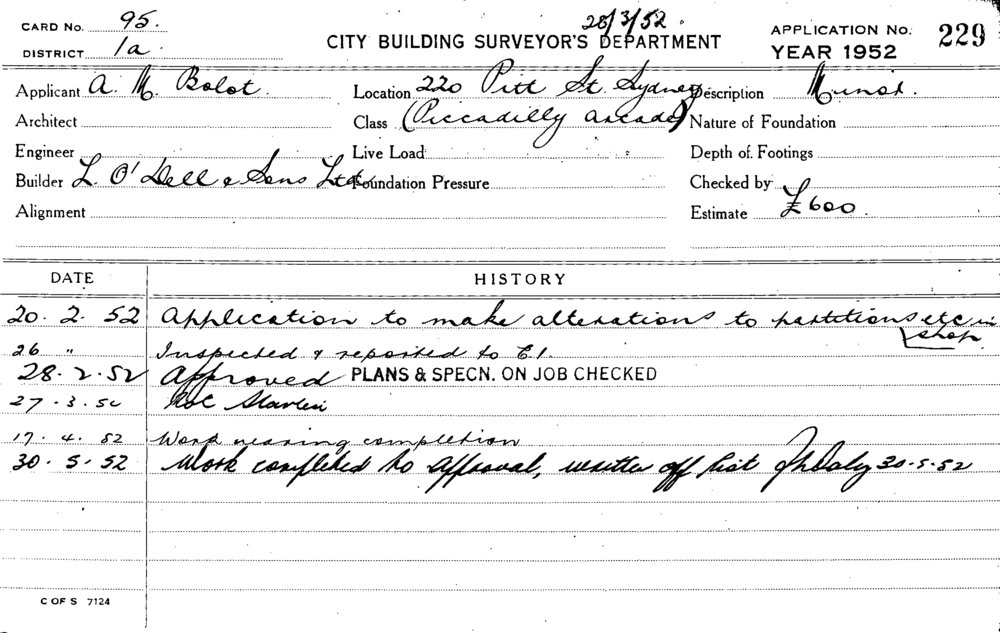 CARD No. 95. 28/3/52. APPLICATION No. 229
DISTRICT 1a. CITY BUILDING SURVEYOR'S DEPARTMENT YEAR 1952
Applicant A. M. Bolot. Location 220 Pitt St. Sydney Description
Architect Class (Piccadilly Arcade) Nature of Foundation
Engineer Live Load Depth of Footings
Builder L. O'Dell & Sons Ltd. Foundation Pressure Checked by
Alignment Estimate £600.
DATE HISTORY
20. 2. 52 Application to make alterations to partitions etc in
shop
26 " Inspected & reported to E.I.
28. 2. 52 Approved PLANS & SPECN. ON JOB CHECKED
27. 3. 52
17. 4. 52 Work nearing completion
30. 5. 52 Work completed to approval, written off list 30.5.52
C OF S 7124